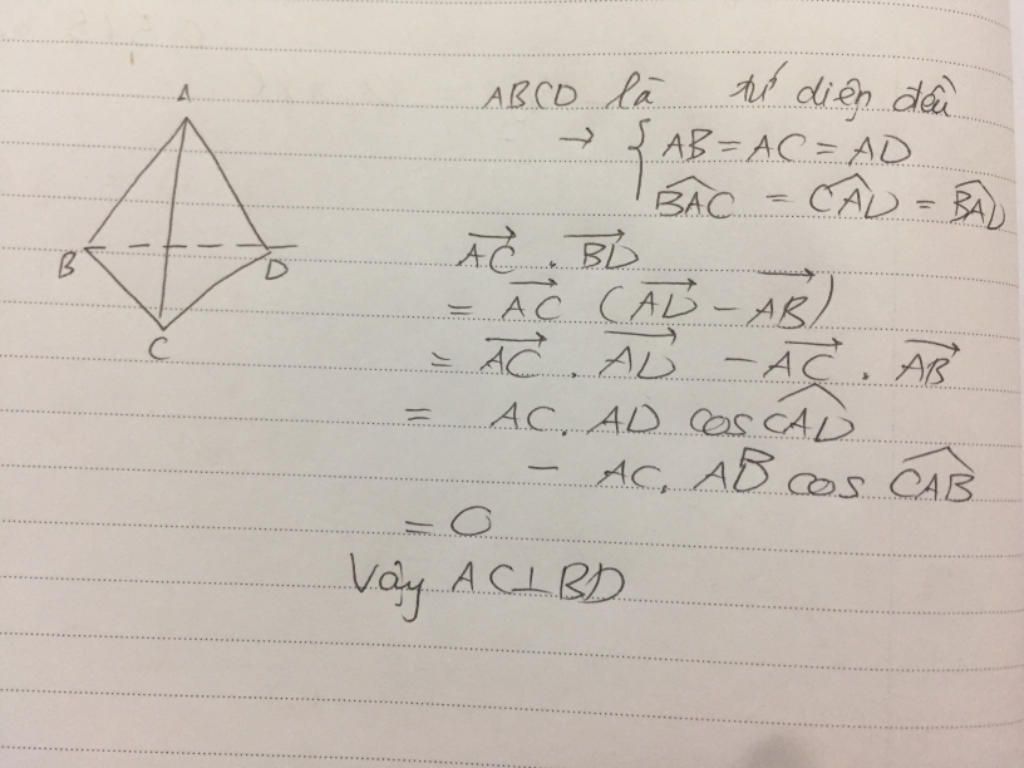 A
B
D
C
ABCD là tứ diện đều
→ { AB = AC = AD
BAC = CAD = BAD
AC . BD
= AC (AD - AB)
= AC . AD - AC . AB
= AC. AD cos CAD
- AC. AB cos CAB
= 0
Vậy AC⊥BD